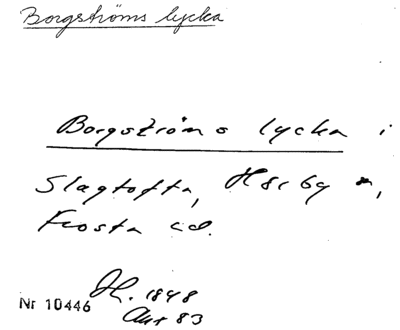 Borgströms lycka
Borgströms lycka i
Slagtofta, Hörby sn,
Frosta hd.
1848
Nr 10446
83